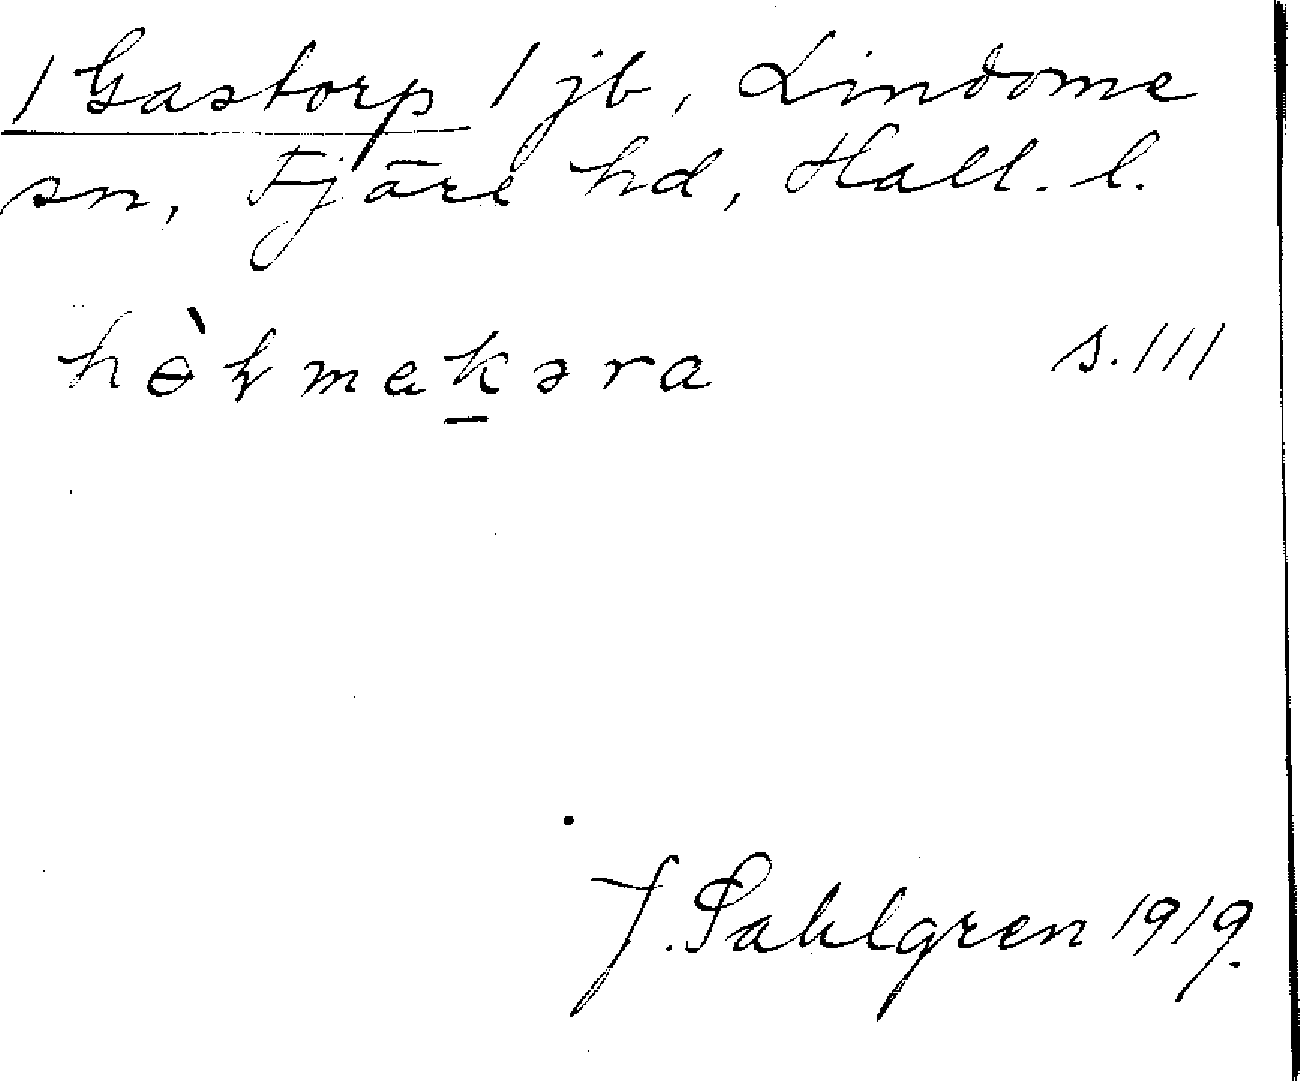 1 Gastorp 1 jb, Lindome
sn, Fjäre hd, Hall. l.
hɵ̀kmakəra s. 111
J. Sahlgren 1919.